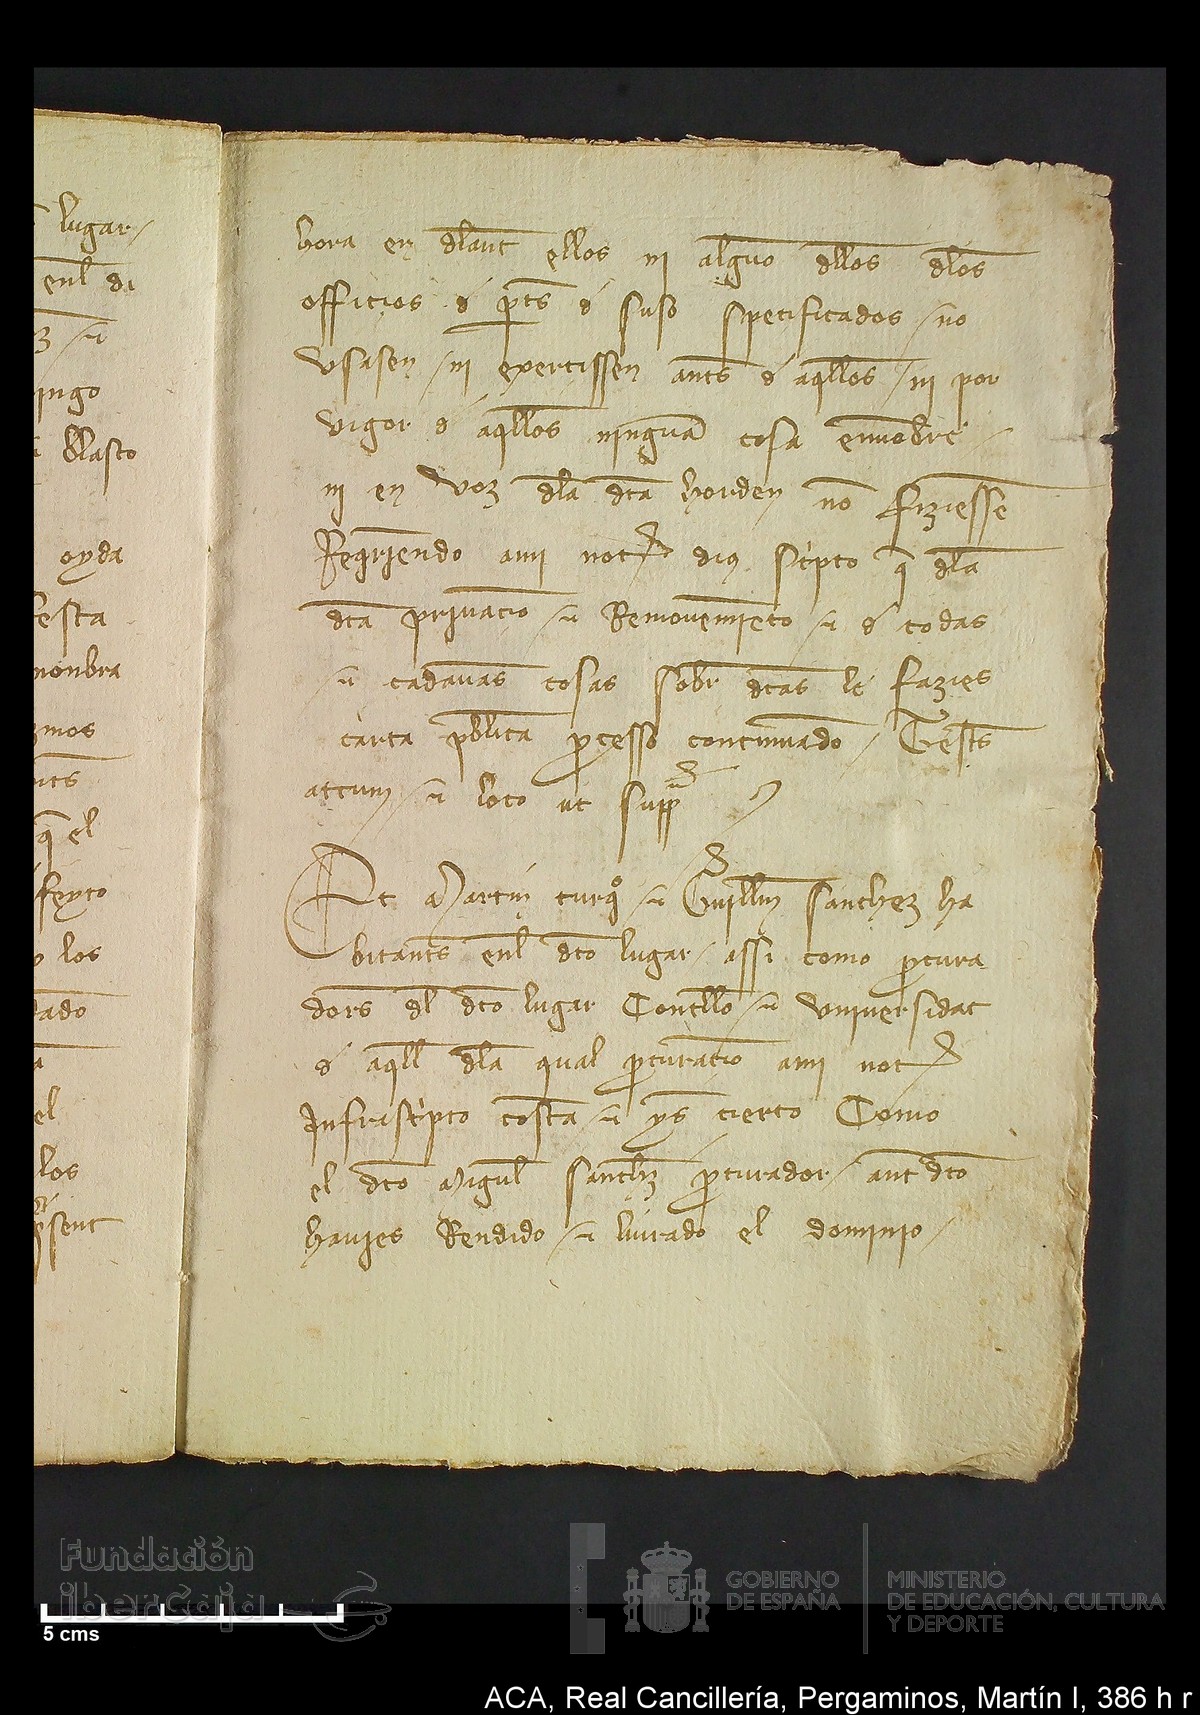 lugar
enl di
ingo
blasco
oyda
esta
nonbra
zmos
q̄ el
feyto
los
tado
el
los
p̄sent
hora en dlant ellos ni alguo dllos dlos
officios d p̄ts d suso specificados no
vsasen ni exercissen ants d aqllos ni por
vigor d aqllos ninguā cosa ennobre
ni en voz dla dca horden no fiziesse
Reqriendo ami not dius scpto q̄ dla
dca priuacio Remouemieto d todas
cadaunas cosas sobr dcas le fazies
carta pblica p̄cesso continuado Tests
actum loco ut supp̄
Et Martin turqo Guillm Sanchez ha
bitants enl dco lugar assi como p̄cura
dors dl dco lugar Concllo vniuersidat
d aqll dla qual p̄curacio ami not
Infrascpto costa ys cierto Como
el dco Migul Sanchz p̄curador ant dco
hauies Rendido liurado el dominio
Fundación
ibercaja
5 cms
GOBIERNO
DE ESPAÑA
MINISTERIO
DE EDUCACIÓN, CULTURA
Y DEPORTE
ACA, Real Cancillería, Pergaminos, Martín I, 386 h r